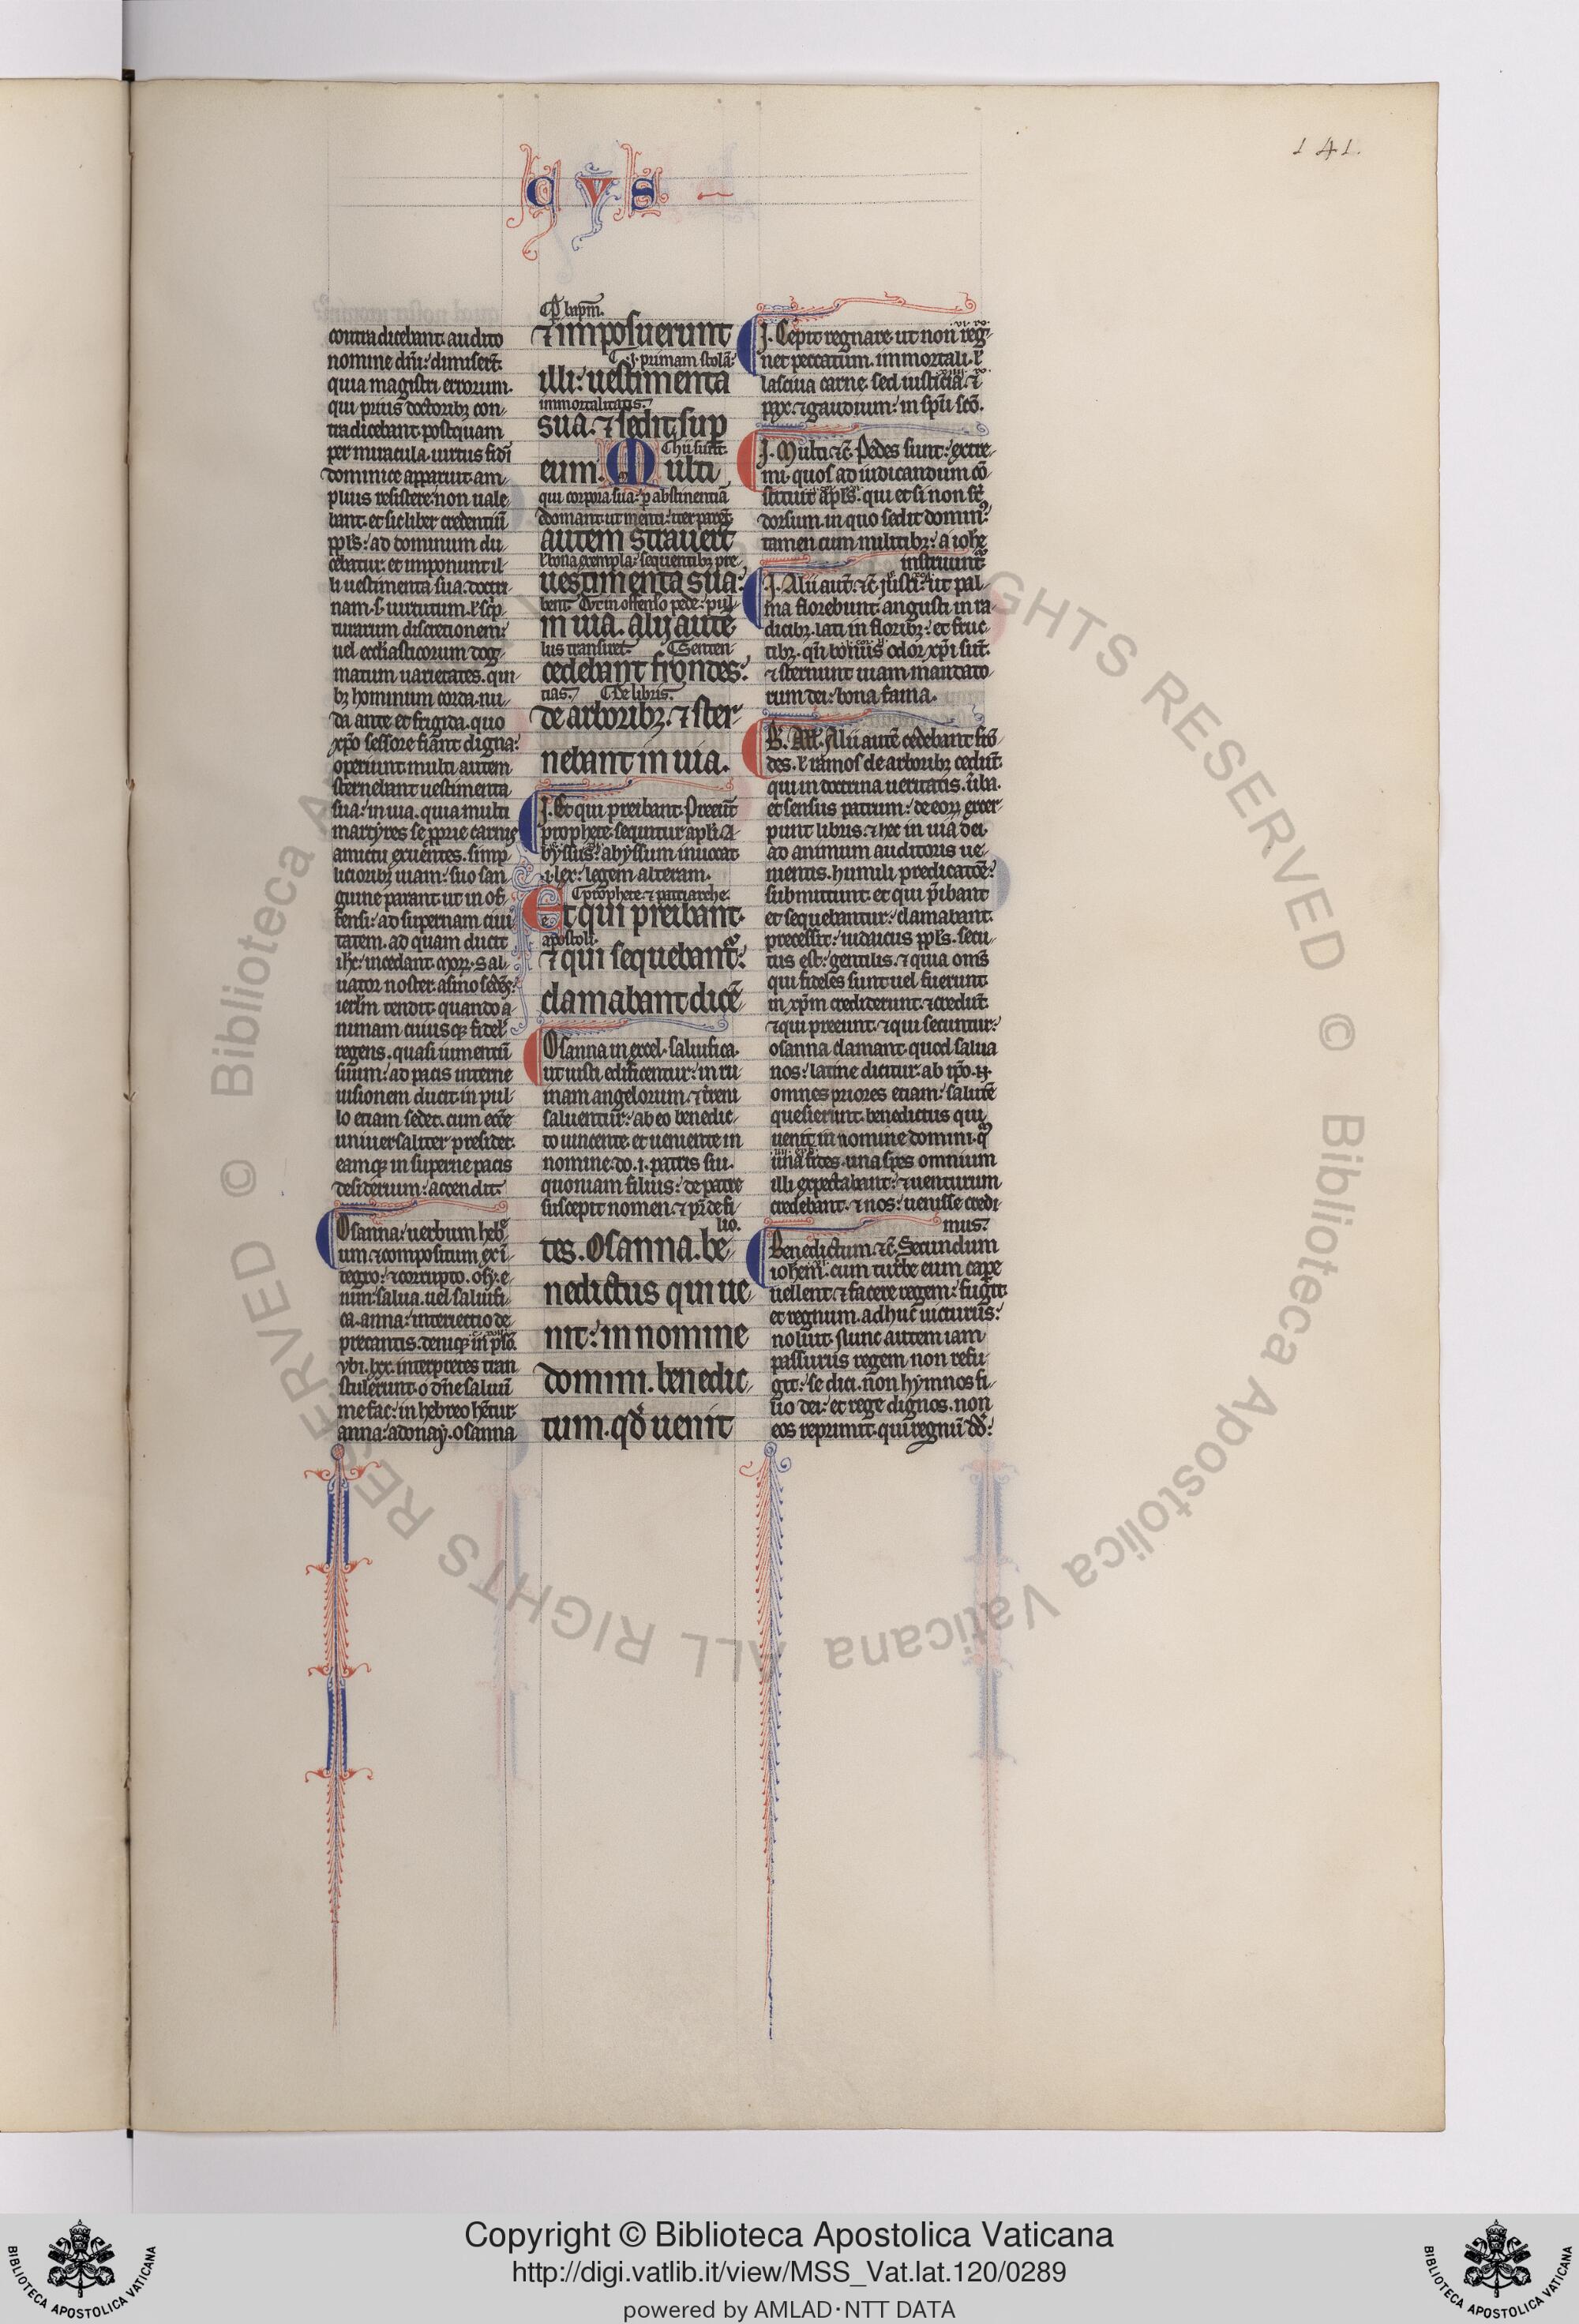 141.
C V S
contradicebant. audito
nomine dñi: dimiserũt.
quia magistri errorum.
qui prius doctoribꝫ con-
tradicebant. postquam
per miracula. uirtus fidei
dominice apparuit. am-
plius resistere. non uale-
bant. et sic liber credentiũ
ppl's: ad dominum du-
cebatur. et imponunt il-
li uestimenta sua. doctri-
nam. s. uirtutum. ł scp-
turarum discretionem:
uel ecclesiasticorum dog-
matum uarietates. qui-
bꝫ hominum corda. nu-
da ante et frigida. quo
xp̃o sessore fiant digna:
operiunt. multi autem
sternebant uestimenta
sua: in uia. quia multi
martyres se pprie carnis
amictu exuentes. simp-
licioribꝫ uiam: suo san-
guine parant. ut in of-
fensi: ad supernam ciui-
tatem. ad quam ducit
ihc: incedant. Sal-
uator noster. asino sedẽs:
ierlm tendit. quando a-
nimam cuiusqꝫ fidel'
regens. quasi iumentũ
suum: ad pacis interne
uisionem ducit. in pul-
lo etiam sedet. cum ecc̃e
uniuersaliter presidet.
eamqꝫ in superne pacis
desiderium: accendit.
Osanna: uerbum heb'e
um. ⁊ compositum ex ĩ-
tegro: ⁊ corrupto. osy. e-
nim. salua. uel saluifi-
ca. anna: interiectio de-
precantis. deniqꝫ in ps̃o.
vbi. lxx. interpretes tran-
stulerunt. o dñe saluũ
me fac: in hebreo hẽtur.
anna: adonay. osanna
⁊ imposuerunt
.i. primam stolã.
illi: uestimenta
immortalitatis.
sua. ⁊ sedit sup
eum. Multi
qui corpora sua: p abstinentiã
domant. ut menti: iter parent
autem strauert̃
ł bona exempla: sequentibꝫ pre-
uestimenta sua:
bent. Vt in offenso pede: pul-
in uia. alij autẽ
lus transiret. Senten-
cedebant frondes:
tias. De libris.
de arboribꝫ. ⁊ ster-
nebant in uia.
I. Et qui preibant. Preeũt
prophete. sequntur apl'i. A-
byssus: abyssum inuocat
.i. lex: legem alteram.
prophete. ⁊ patriarche.
Et qui preibant.
apostoli.
⁊ qui sequebant':
clamabant dicẽ-
Osanna in excel. saluifica.
ut iusti edificentur: in ru-
inam angelorum. ⁊ t'reni
saluentur: ab eo benedic-
to uincente. et ueniente in
nomine. do. i. patris sui.
quoniam filius: de patre
suscepit nomen. ⁊ pr̃ de fi-
lio.
tes. Osanna. be-
nedictus qui ue-
nit: in nomine
domini. benedic-
tum. qd' uenit
I. Cepit regnare. ut non reg-
net peccatum. immortali. ł
lasciua carne. sed iusticia. ⁊
pax. ⁊ gaudium: in sp̃u sc̃o.
I. Multi. ⁊c̃. Pedes sunt: extre-
mi. quos ad iudicandum cõ-
stituit apl's. qui et si non st̃
dorsum. in quo sedit domin':
tamen cum militibꝫ: a iohe
instruunt'
I. Alii aut. ⁊c̃. Justi: ut pal-
ma florebunt. angusti in ra-
dicibꝫ. lati in floribꝫ: et fruc-
tibꝫ. qñ bonus odor xp̃i sunt.
⁊ sternunt uiam mandato-
rum dei: bona fama.
B. Alii autẽ cedebant frõ-
des. ł ramos de arboribꝫ cedũt.
qui in doctrina ueritatis. ũba.
et sensus patrum: de eoꝝ excer-
punt libris. ⁊ hec in uia dei.
ad animum auditoris ue-
nientis. humili predicatõe:
submittunt. et qui p̃ibant
et sequebantur: clamabant.
precessit: iudaicus ppl's. secu-
tus est: gentilis. ⁊ quia oms̃
qui fideles sunt uel fuerunt
in xp̃m crediderunt. ⁊ credũt.
⁊ qui preeunt. ⁊ qui secuntur:
osanna clamant. quod salua
nos: latine dicitur. ab ip̃o. N.
omnes priores etiam: salutẽ
quesierunt. benedictus qui
uenit in nomine domini. q'
una fides. una spes omnium
illi expectabant: ⁊ uenturum
credebant. ⁊ nos: uenisse credi-
mus.
Benedictum. ⁊c̃. Secundum
iohem. cum turbe eum capere
uellent. ⁊ facere regem: fugit.
et regnum. adhuc uicturus:
noluit. Nunc autem iam
passurus regem non refu-
git: se dici. non hymnos fi-
lio dei: et rege dignos. non
eos reprimit. qui regnũ dd':
Copyright © Biblioteca Apostolica Vaticana
http://digi.vatlib.it/view/MSS_Vat.lat.120/0289
powered by AMLAD·NTT DATA
BIBLIOTECA APOSTOLICA VATICANA
BIBLIOTECA APOSTOLICA VATICANA
© Biblioteca Apostolica Vaticana ALL RIGHTS RESERVED